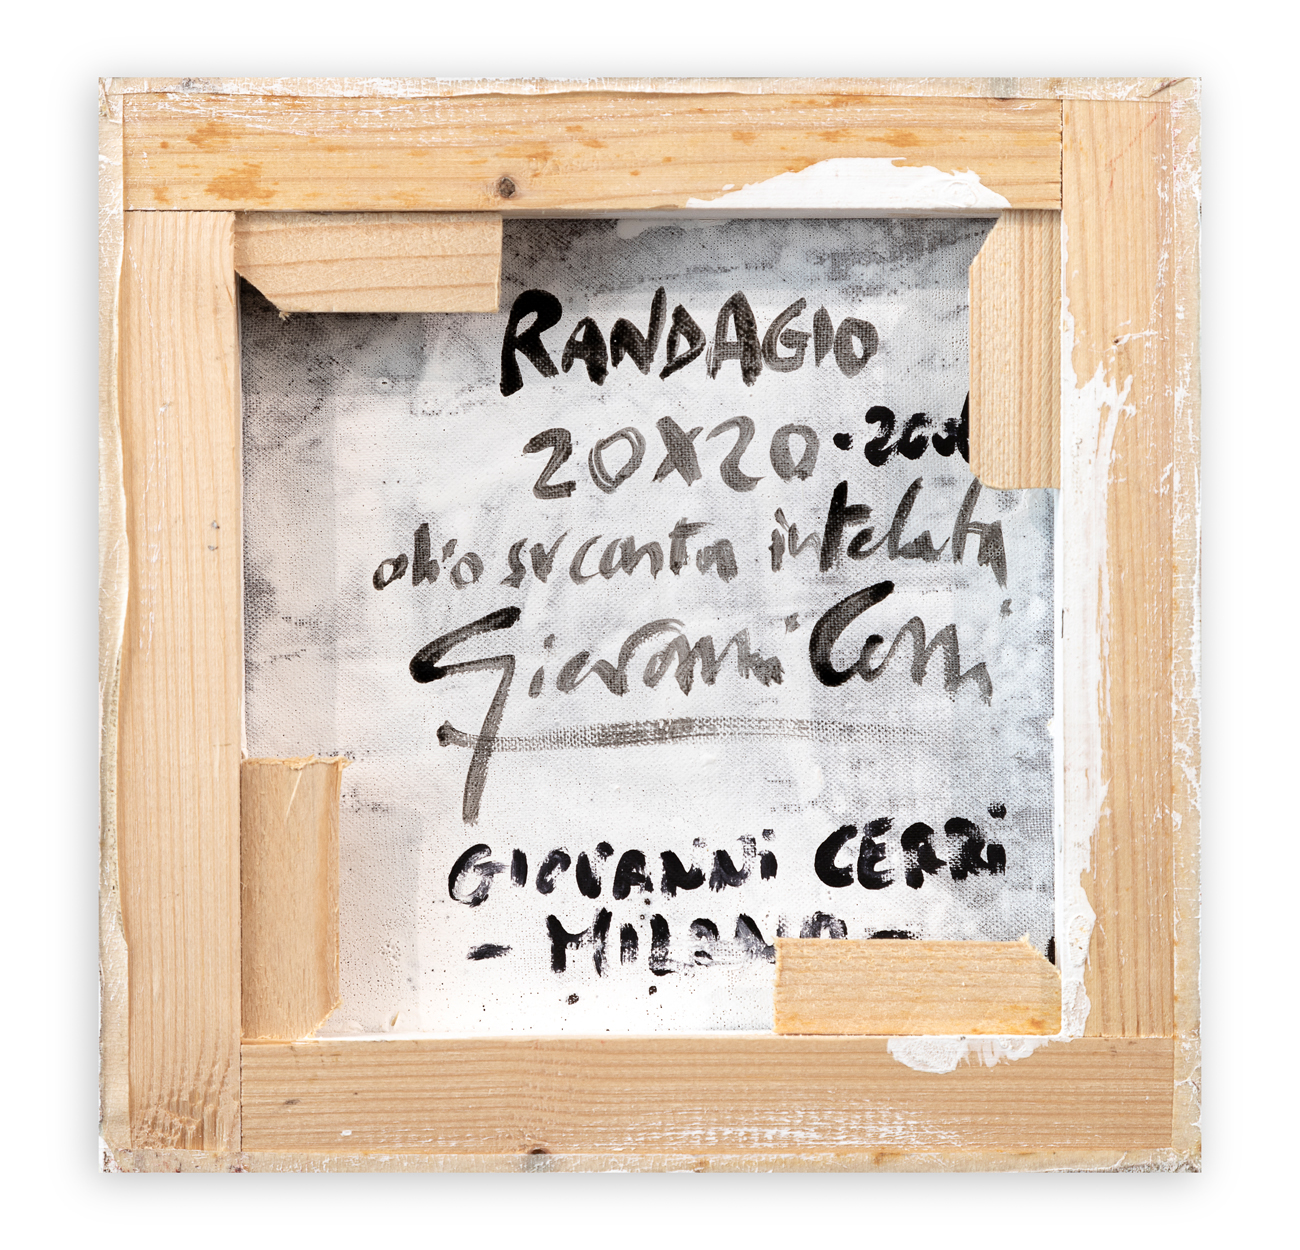 RANDAGIO
20X20 ·
olio su carta intelata
Giovanni Cerri
GIOVANNI CERRI
- MILANO -